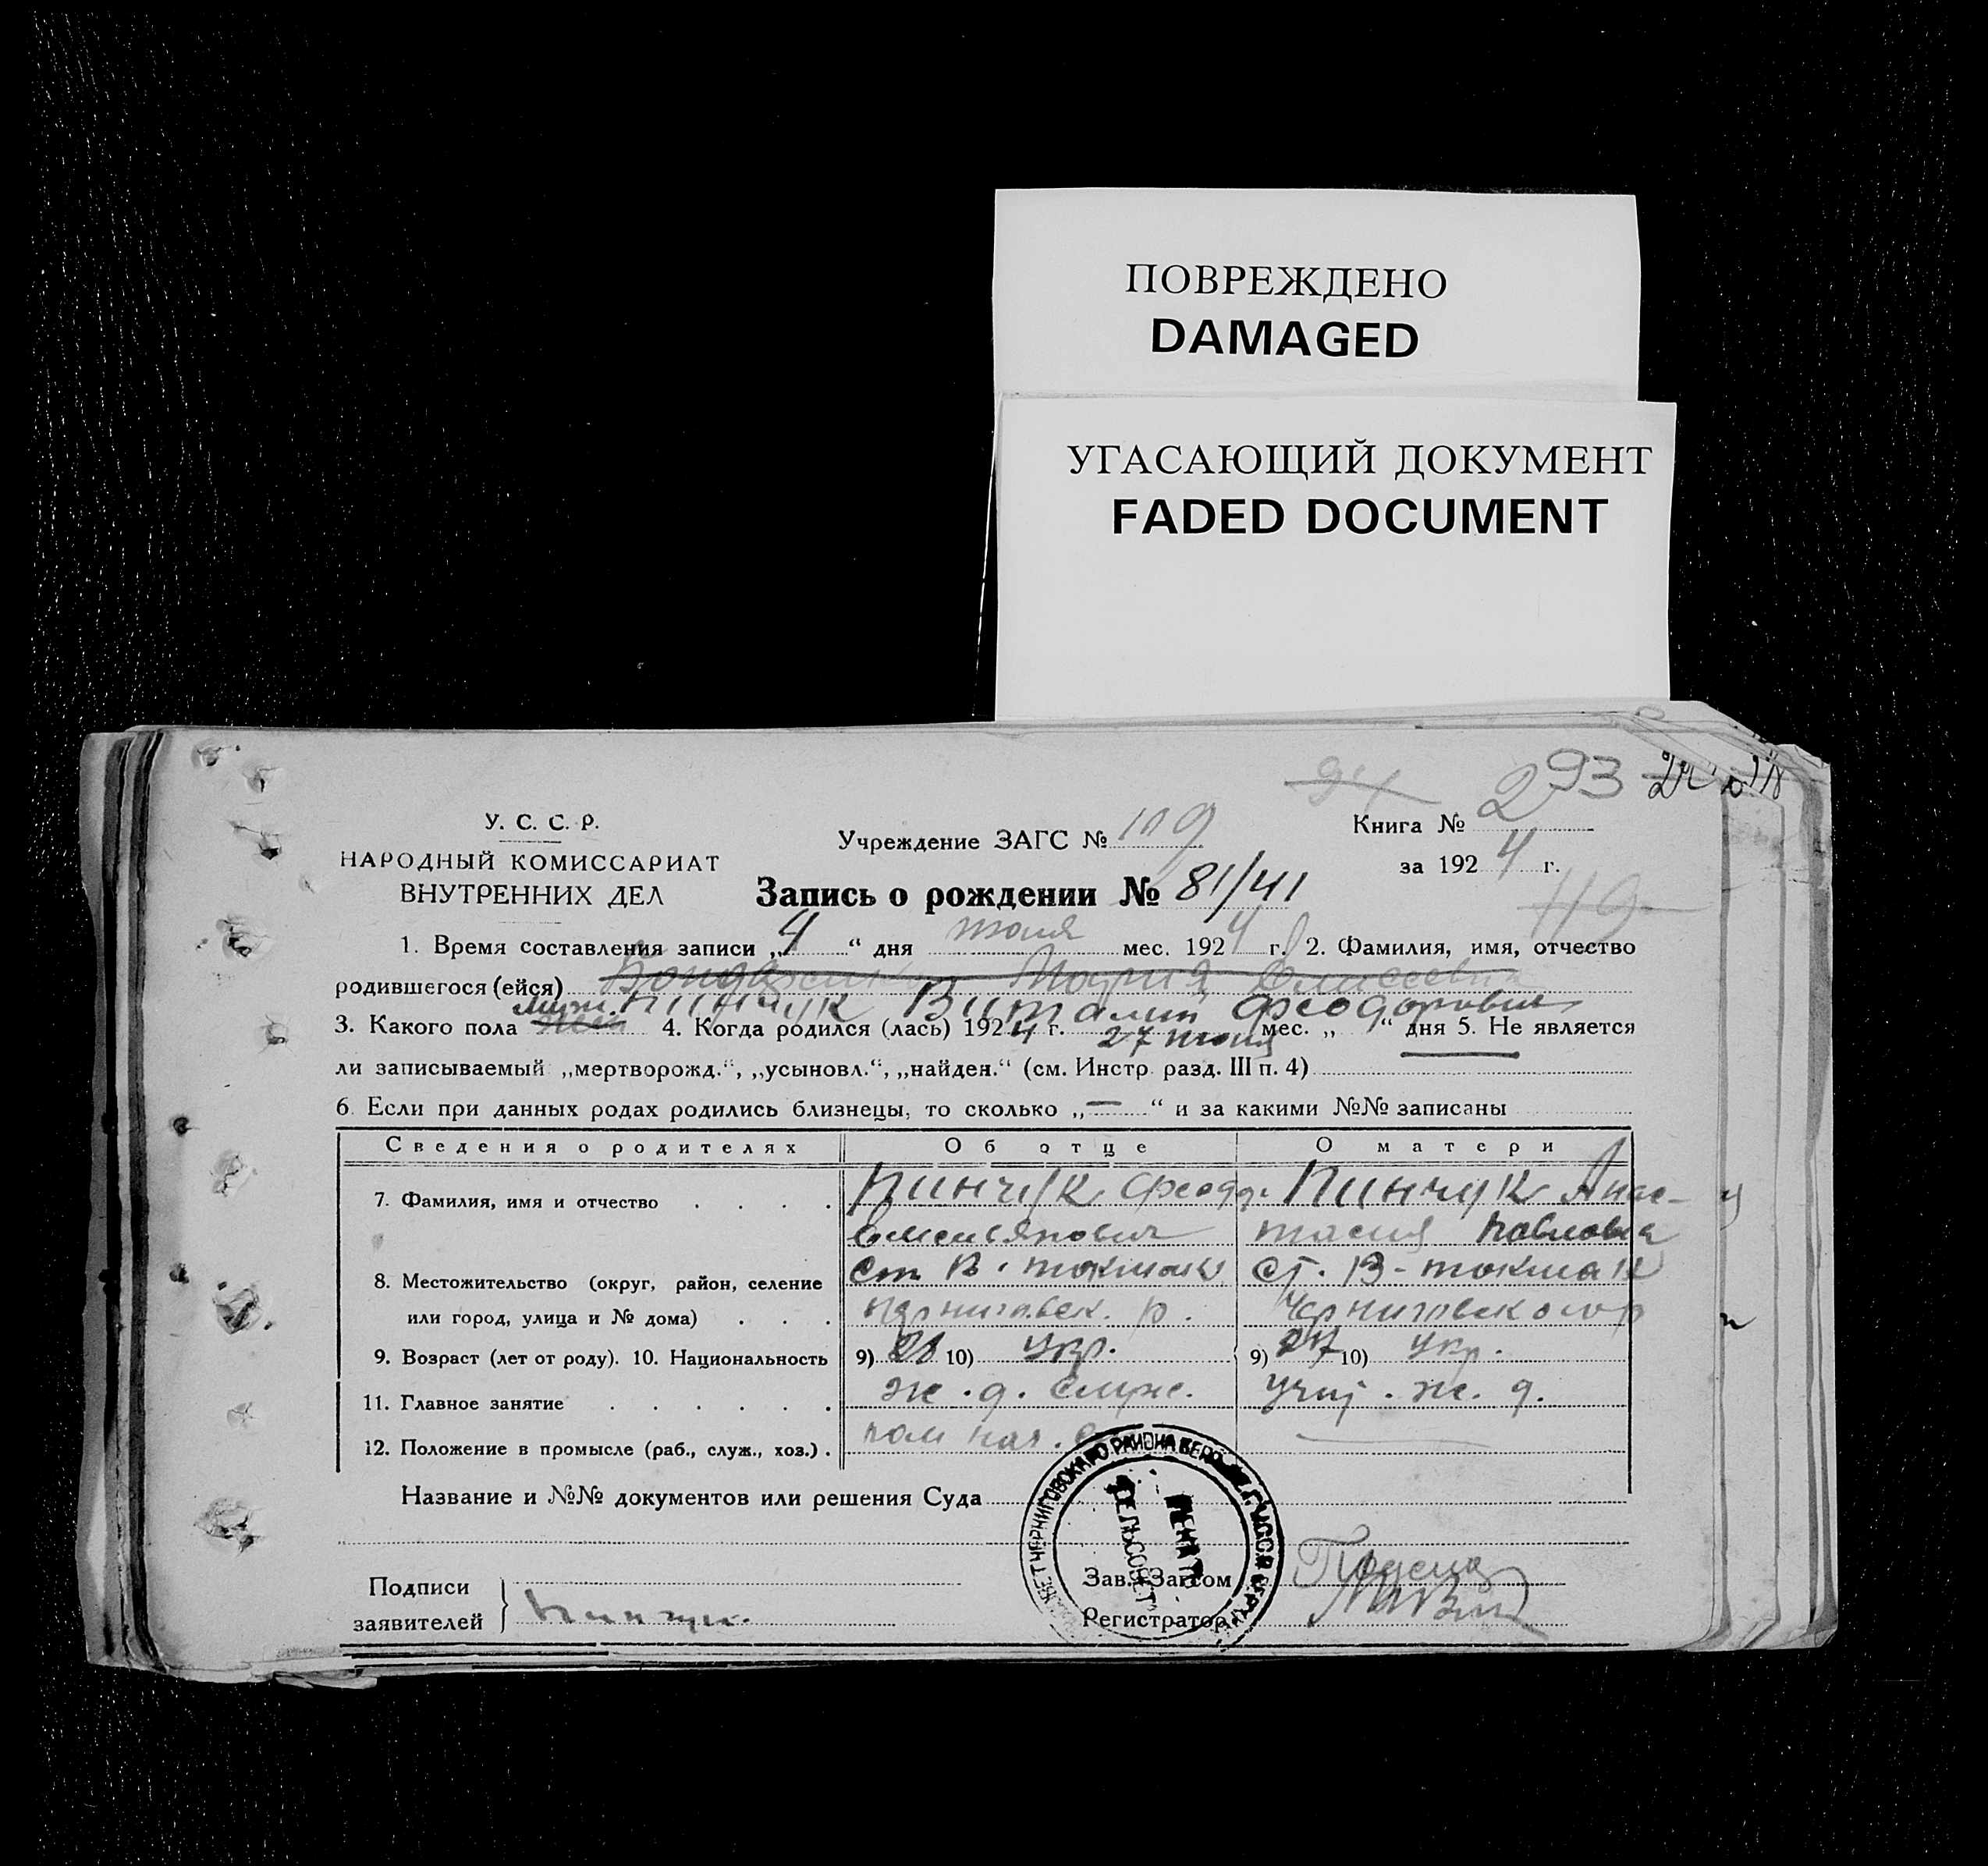 ПОВРЕЖДЕНО
DAMAGED
УГАСАЮЩИЙ ДОКУМЕНТ
FADED DOCUMENT
293
У. С. С. Р.
НАРОДНЫЙ КОМИССАРИАТ
ВНУТРЕННИХ ДЕЛ
Учреждение ЗАГС № 109
Книга №
за 1924 г.
119
Запись о рождении № 81/41
1. Время составления записи „4“ дня июля мес. 1924 г. 2. Фамилия, имя, отчество
родившегося (ейся) Бондаренко Мария Елисеевна
муж. Пинчук Виталий Феодорович
3. Какого пола жен 4. Когда родился (лась) 1924 г. 27 июня мес. „ “ дня 5. Не является
ли записываемый „мертворожд.“, „усыновл.“, „найден.“ (см. Инстр. разд. III п. 4)
6. Если при данных родах родились близнецы, то сколько „—“ и за какими №№ записаны
Сведения о родителях Об отце О матери
7. Фамилия, имя и отчество Пинчук Феодор Пинчук Анас-
Емельянович тасия Павловна
8. Местожительство (округ, район, селение Ст. В. Токмак ст. В-Токмак
или город, улица и № дома) Черниговск. р. Черниговского р
9. Возраст (лет от роду). 10. Национальность 9) 28 10) Укр. 9) 27 10) Укр.
11. Главное занятие ж.д. служ. учит. ж.д.
12. Положение в промысле (раб., служ., хоз.) пом нач.
Название и №№ документов или решения Суда
ЧЕРНИГОВСКАГО РАЙОНА
СЕЛЬСОВЕТ
Подписи
заявителей Пинчук
Зав. Загсом
Регистратор